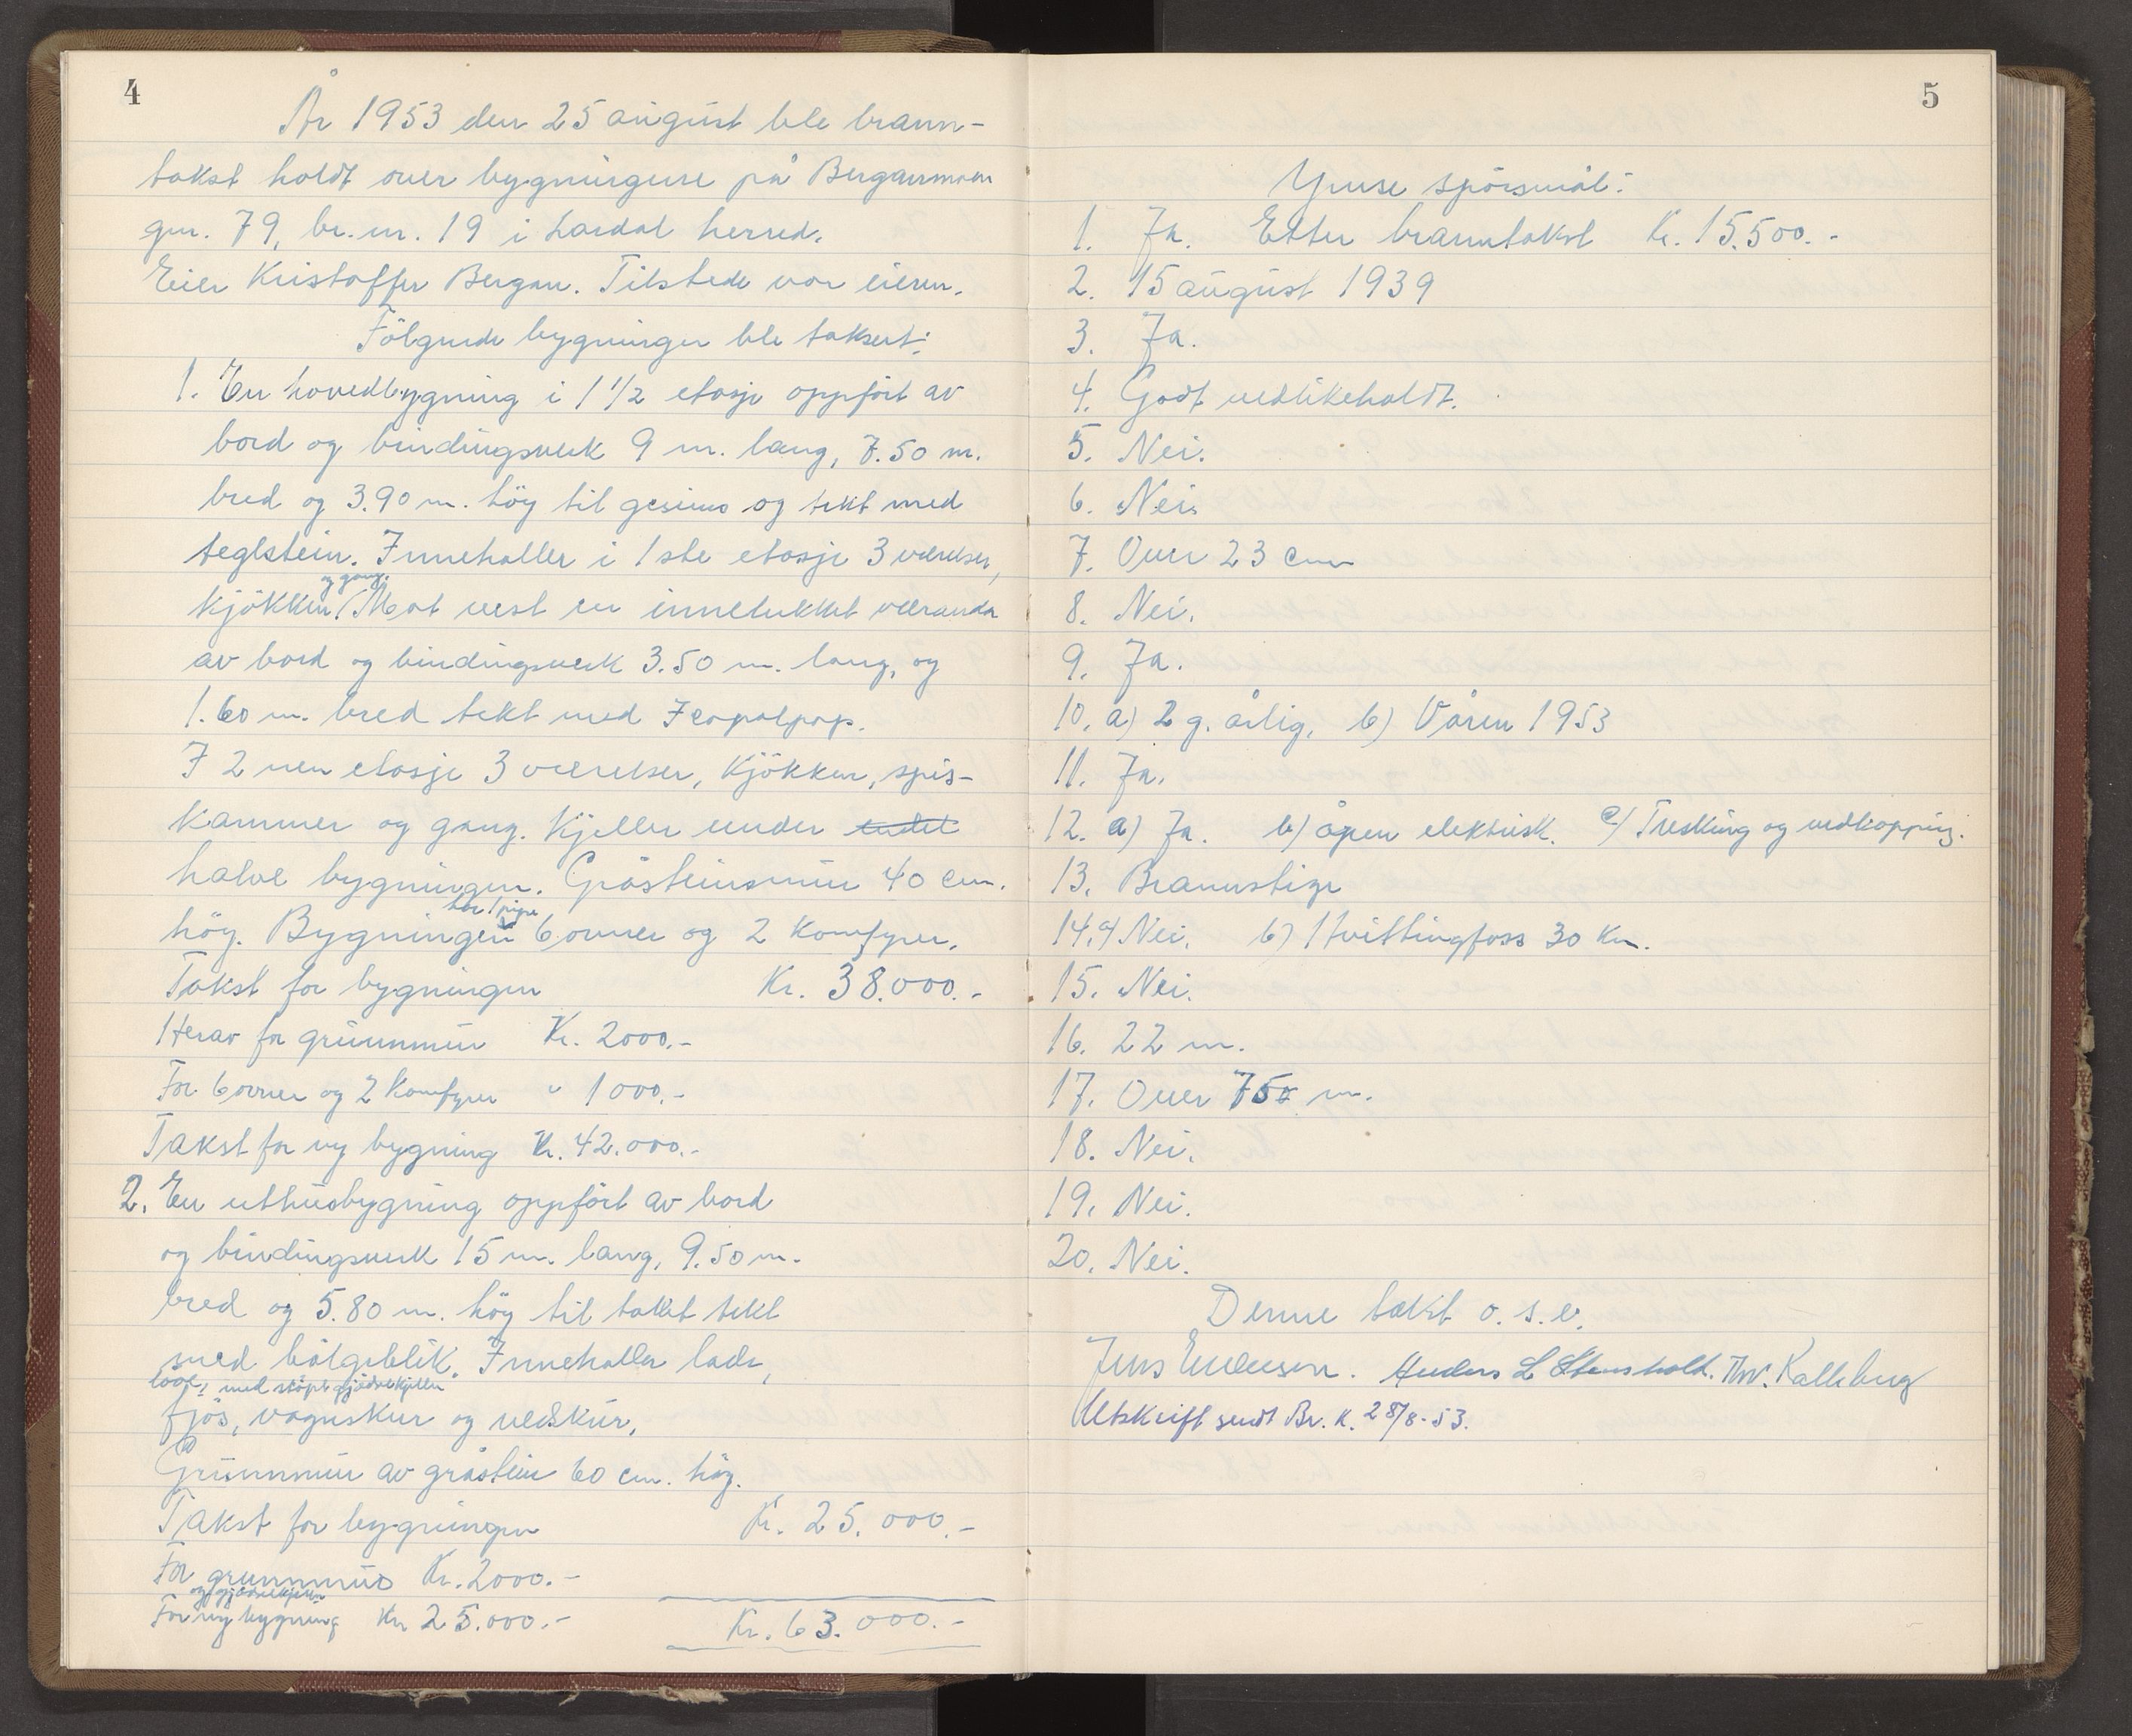 4
År 1953 den 25 august ble brann-
takst holdt over bygningene på Berganmoen
gnr. 79, br.nr. 19 i Lardal herred.
Eier Kristoffer Bergan. Tilstede var eieren.
Fölgende bygninger ble taksert:
1. En hovedbygning i 1 1/2 etasje oppfört av
bord og bindingsverk 9 m. lang, 7.50 m.
bred og 3.90 m. höy til gesims og tekt med
teglstein. Inneholler i 1ste etasje 3 værelser,
og gang.
kjökken. Mot vest en innelukket veranda
av bord og bindingsverk 3.50 m. lang, og
1.60 m. bred tekt med Icopalpap.
I 2nen etasje 3 værelser, Kjökken, spis-
kammer og gang. Kjeller under
halve bygningen. Gråsteinsmur 40 cm.
har 1 pipe
höy. Bygningen 6 ovner og 2 Komfyrer.
Takst for bygningen Kr. 38.000.-
Herav for grunnmur Kr. 2000.-
For 6 ovner og 2 Komfyrer " 1000.-
Takst for ny bygning Kr. 42.000.-
2. En uthusbygning oppfört av bord
og bindingsverk 15 m. lang, 9.50 m.
bred og 5.80 m. höy til taket tekt
med bölgeblik. Inneholler lade,
låve, med stöpt gjödselkjeller
fjös, vognskur og vedskur.
Grunnmur av gråstein 60 cm. höy.
Takst for bygningen Kr. 25.000.-
For grunnmur Kr. 2000.-
og gjödselkjeller
For ny bygning Kr 25.000.-
Kr. 63.000.-
5
Ymse spörsmål:
1. Ja. Etter branntakst Kr. 15.500.-
2. 15 august 1939
3. Ja.
4. Godt vedlikeholdt.
5. Nei.
6. Nei.
7. Over 23 cm
8. Nei.
9. Ja.
10. a) 2 g. årlig. b) Våren 1953
11. Ja.
12. a) Ja. b) åpen elektrisk. c) Tresking og vedkapping.
13. Brannstige
14. a Nei. b) Hvittingfoss 30 Km.
15. Nei.
16. 22 m.
17. Over 750 m.
18. Nei.
19. Nei.
20. Nei.
Denne takst o.s.v.
Jens Evensen. Anders L Stensholt. Thv. Kalleberg
Utskrift sendt Br. K. 28/8-53.